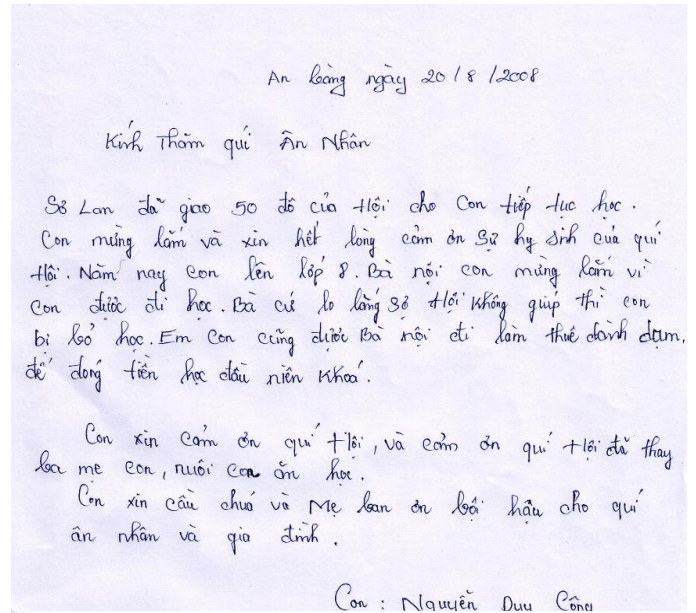 An Hoàng ngày 20/8/2008
Kính Thăm quí Ân Nhân
Sơ Lan đã giao 50 đô của Hội cho Con tiếp tục học.
Con mừng lắm và xin hết lòng cảm ơn Sự hy sinh của quí
Hội. Năm nay con lên lớp 8. Bà nội con mừng lắm vì
con được đi học. Bà cứ lo lắng sợ Hội không giúp thì con
bị bỏ học. Em con cũng được Bà nội đi làm thuê dành dụm,
để đóng tiền học đầu niên khoá.
Con xin cảm ơn quí Hội, và cảm ơn quí Hội đã thay
ba mẹ con, nuôi con ăn học.
Con xin cầu chuá và Mẹ ban ơn bội hậu cho quí
ân nhân và gia đình.
Con : Nguyễn Duy Công